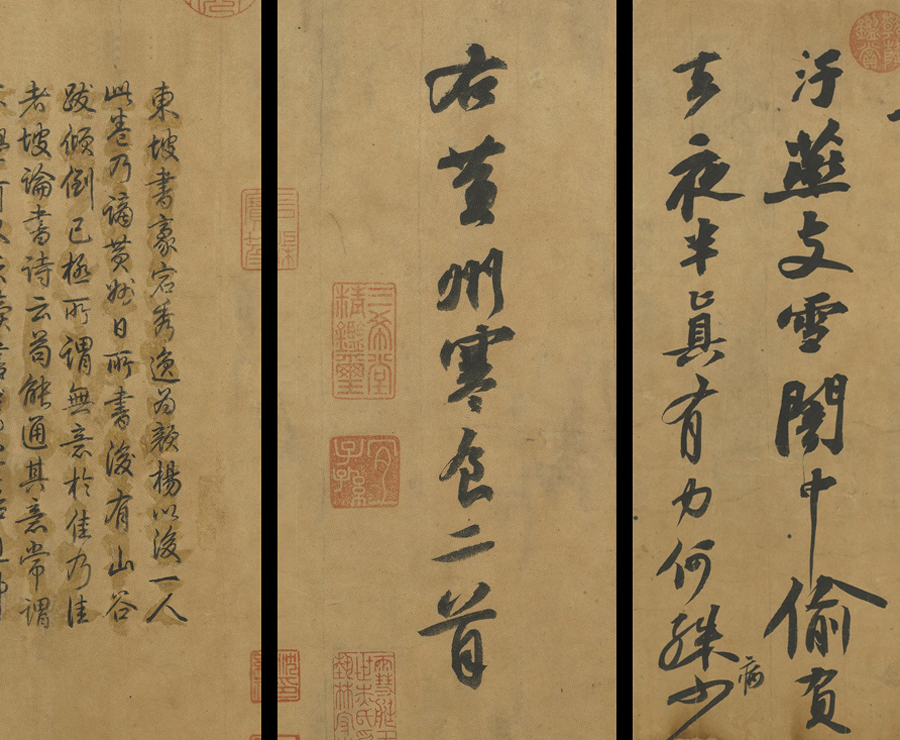 乾隆鑑賞
汙燕支雪闇中偷負
去夜半真有力何殊少
病
右黃州寒食二首
三希堂精鑑璽
宜子孫
東坡書豪宕秀逸為顏楊以後一人
此卷乃謫黃州日所書後有山谷
跋傾倒已極所謂無意於佳乃佳
者坡論書詩云苟能通其意常謂